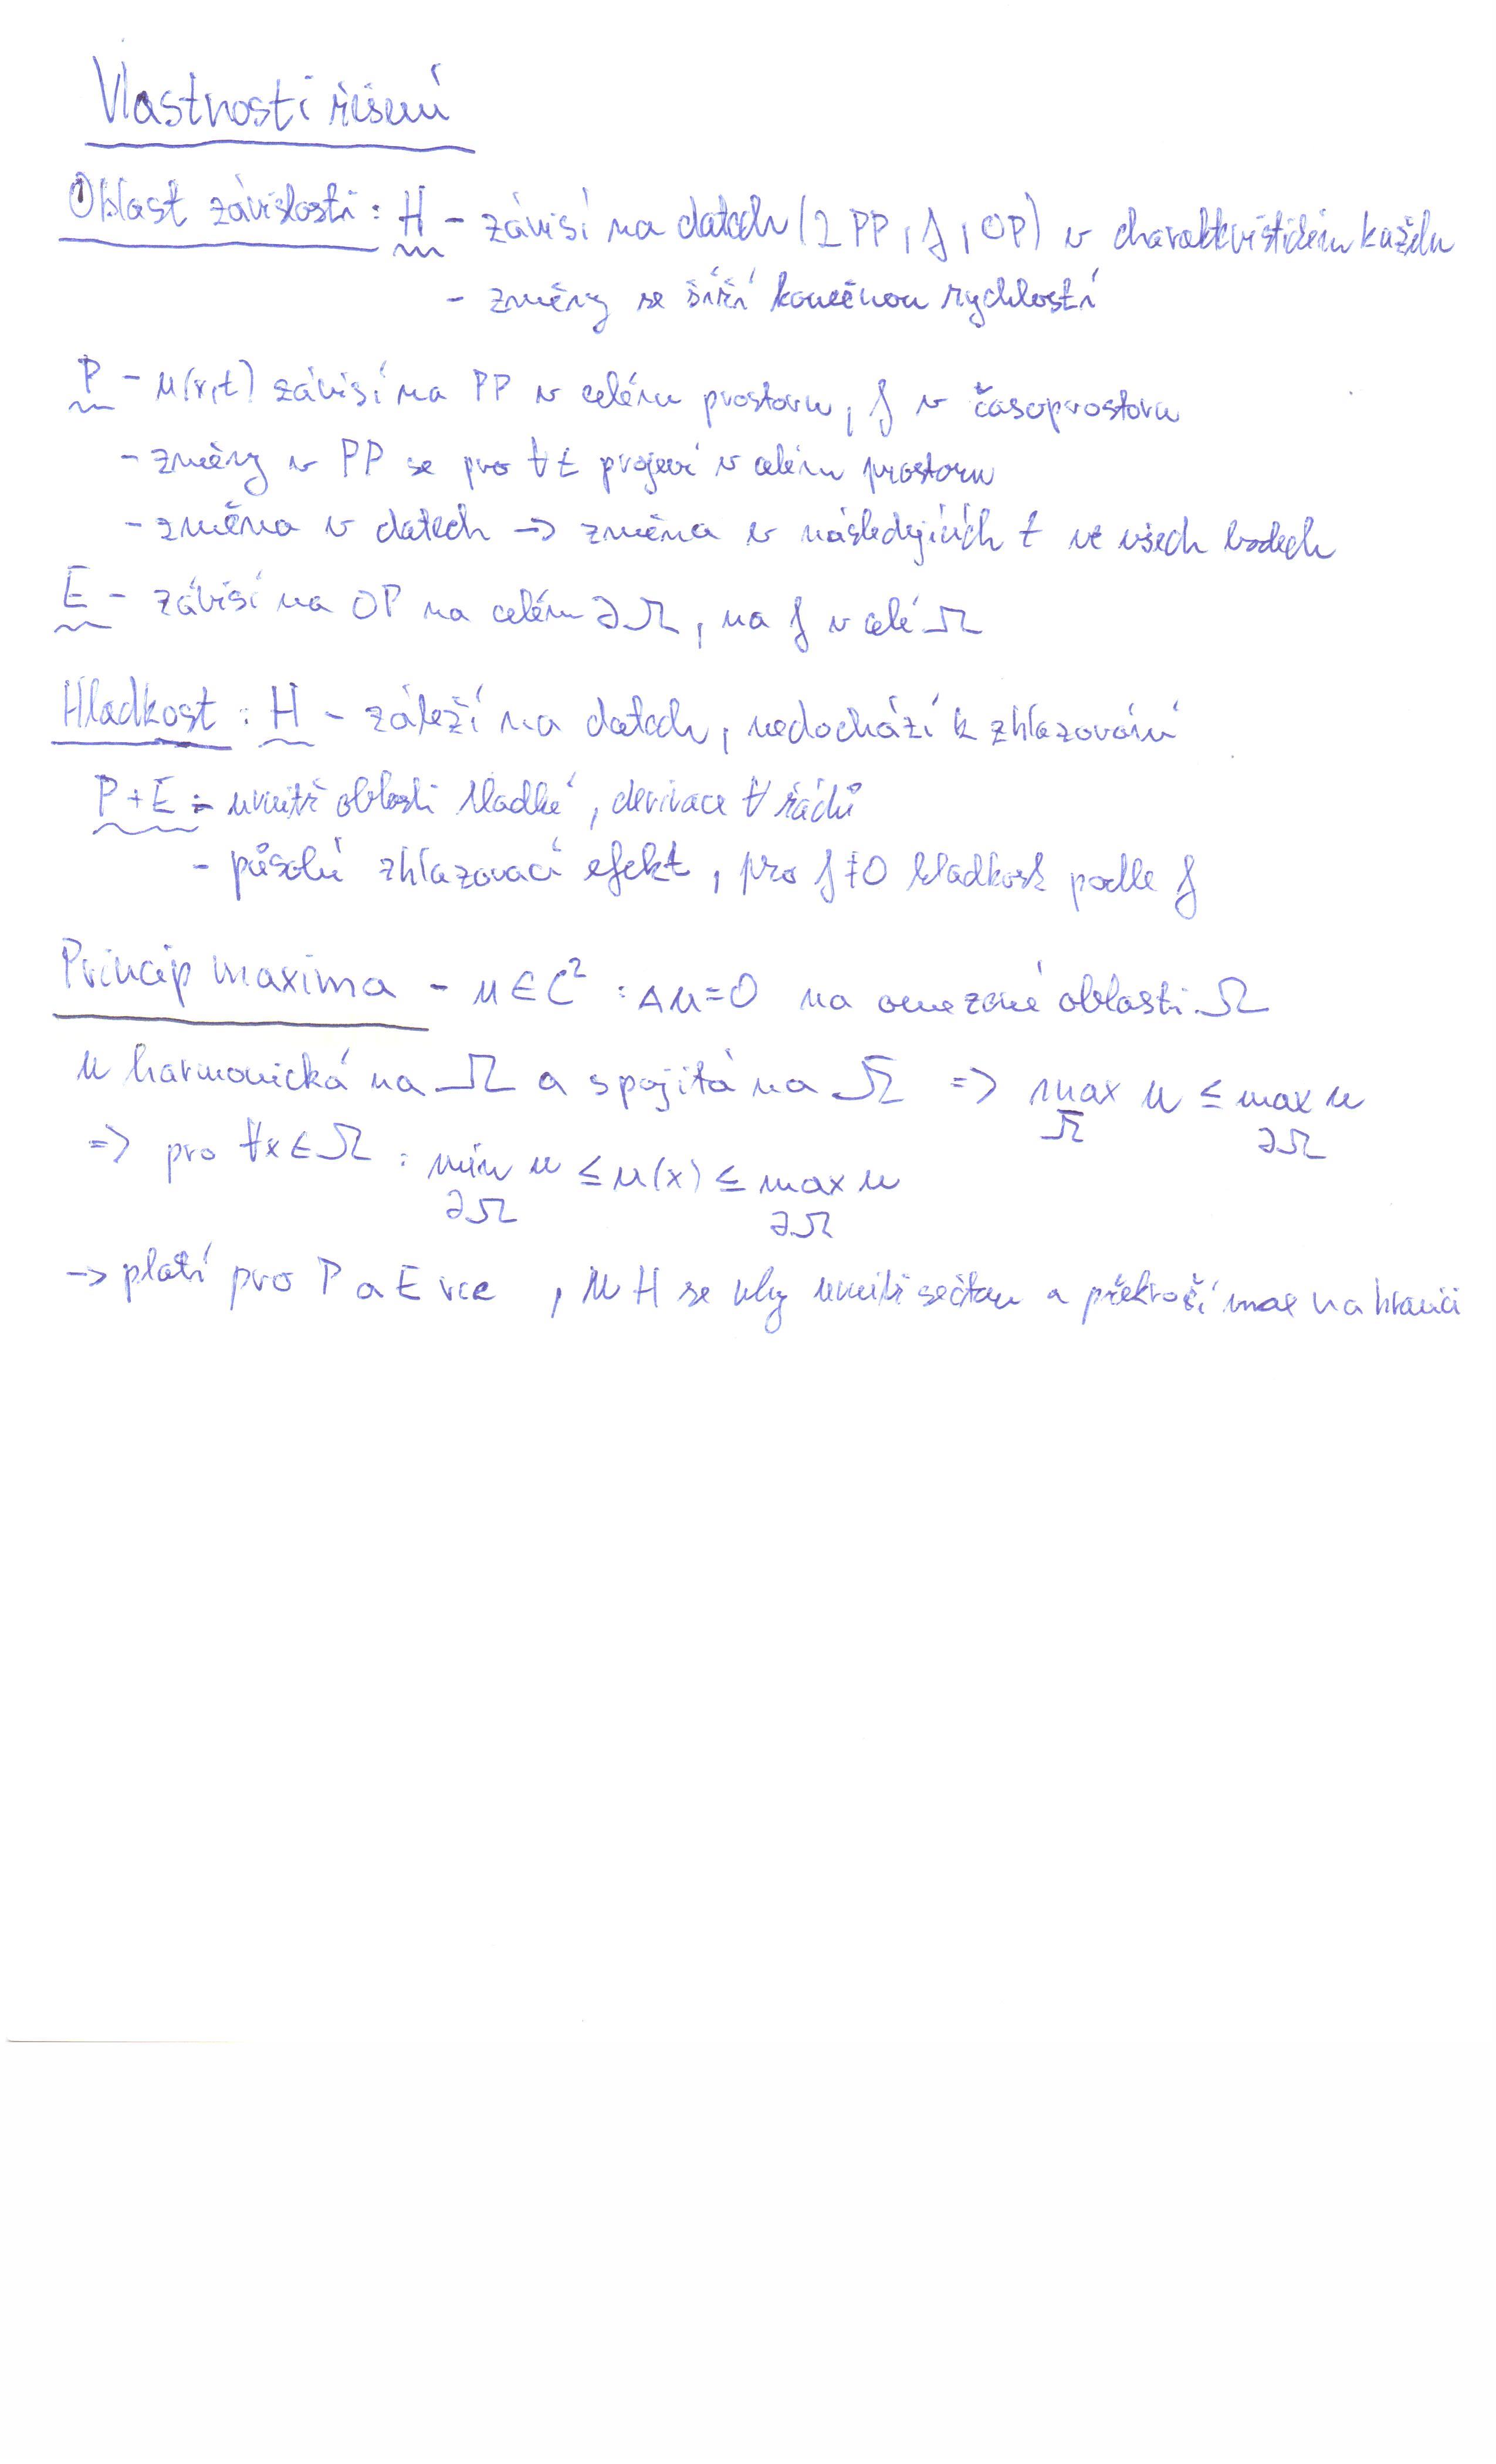 Vlastnosti řešení
Oblast závislosti: H - závisí na datech (2 PP, f, OP) v charakteristickém kuželu
- změny se šíří konečnou rychlostí
P - u(x,t) závisí na PP v celém prostoru, f v časoprostoru
- změny v PP se pro ∀t projeví v celém prostoru
- změna v datech -> změna v následujících t ve všech bodech
E - závisí na OP na celém ∂Ω, na f v celé Ω
Hladkost: H - záleží na datech, nedochází k zhlazování
P+E - uvnitř oblasti hladké, derivace ∀ řádů
- působí zhlazovací efekt, pro f≠0 hladkost podle f
Princip maxima - u∈C² : Δu=0 na omezené oblasti Ω
u harmonická na Ω a spojitá na Ω̅ => max u ≤ max u
Ω̅ ∂Ω
=> pro ∀x∈Ω : min u ≤ u(x) ≤ max u
∂Ω ∂Ω
-> platí pro P a E rce, u H se vlny uvnitř sečtou a překročí max na hranici